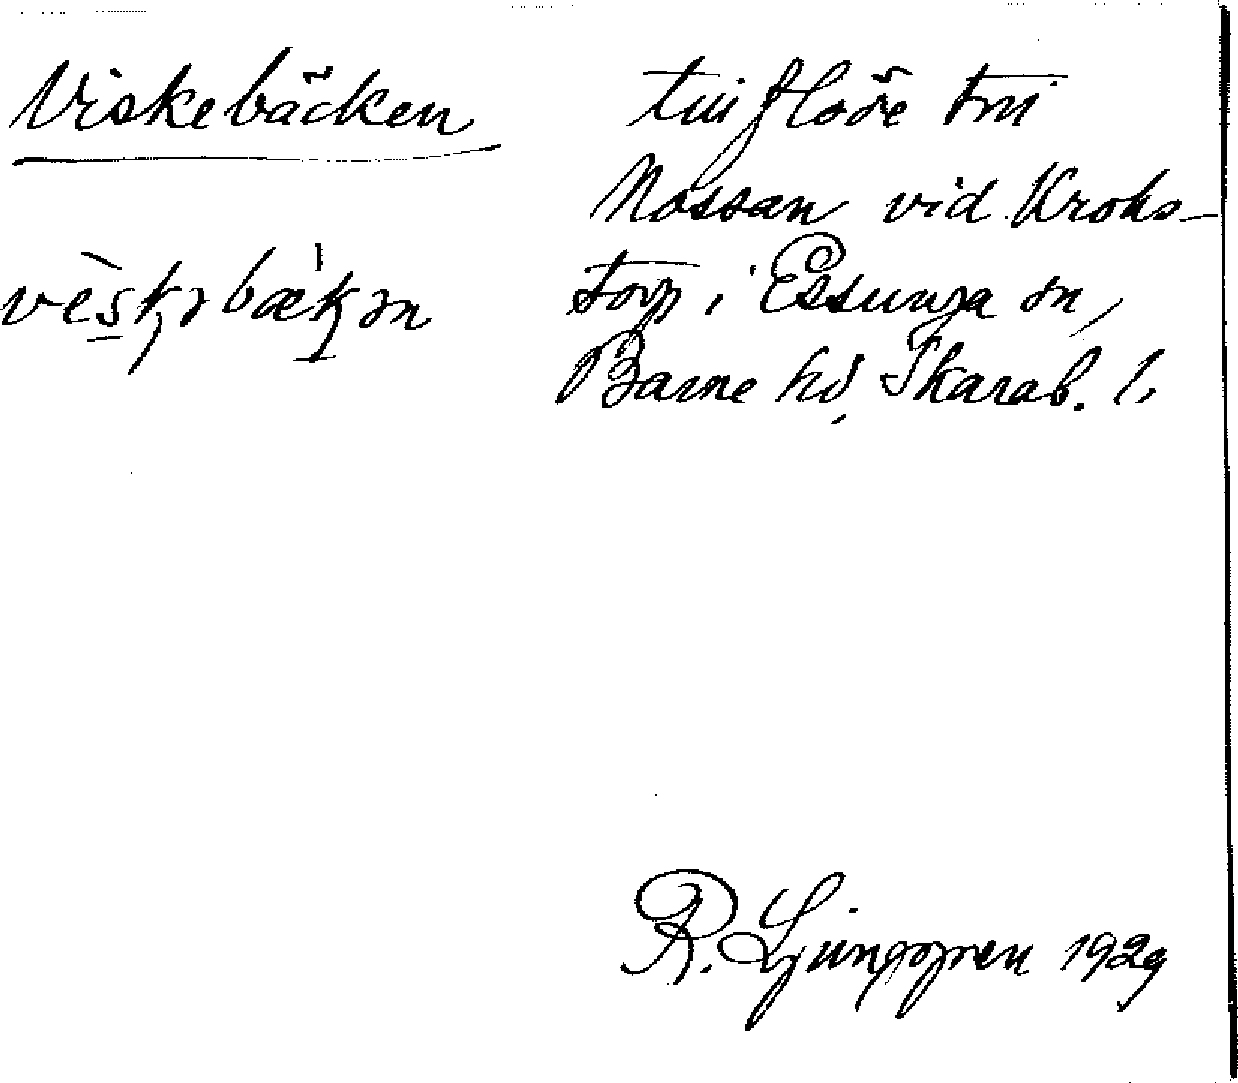 Viskebäcken
tillflöde till
Nossan vid Kroks-
torp i Essunga sn,
Barne hd, Skarab. l.
R. Ljunggren 1929